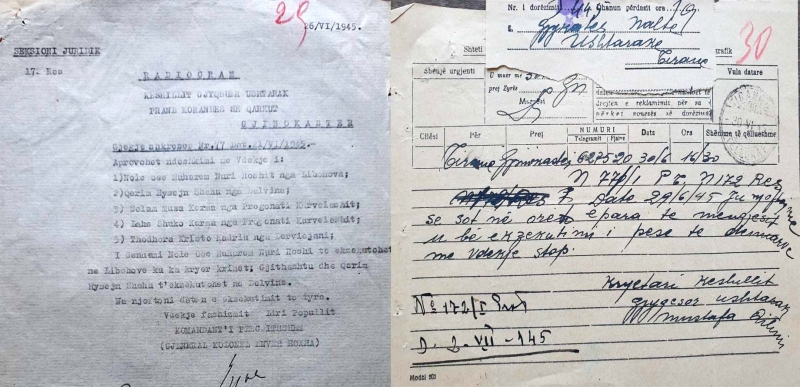 25
26/VI/1945.
SEKSIONI JURIDIK
17. Res
RADIOGRAM
KESHILLIT GJYQESUR USHTARAK
PRANE KOMANDES SE QARKUT
GJINOKASTER
Gjegje shkreses Nr.77 Res.21/VI/1945.
Aprovohet ndeshkimi me Vdekje i:
1)Nolc ose Muharem Nuri Roshit nga Libohova;
2)Qerim Hysejn Shehu nga Delvina;
3) Selam Musa Koram nga Progonati Kurveleshit;
4) Laho Shuko Koram nga Progonati Kurveleshit;
5) Thodhora Kristo Kadriu nga Dervicjani;
I Semuni Nolc ose Muharem Nuri Roshi te eksekutohet
ne Libohove ku ka kryer krimet; Gjithashtu dhe Qerim
Hysejn Shehu t'eksekutohet ne Delvine.
Na njoftoni daten e ekzekutimit te tyre.
Vdekje fashizmit Liri Popullit
KOMANDANT'I PERGJITHSHEM
(GJENERAL KOLONEL ENVER HOXHA)
Nr. i dorëzimit 449 Qhanun përdimit ora 19
Gjykates Nalte
Ushtarake
Tirane
30
Shteti
trafik
Shënjë urgjenti
prej Zyrës
Marrësi
drejten e reklamimit për sa
përket nonesës së dorëzimit
Vula datare
Clësi Për Prej NUMURI Data Ora Shënime të cilësuehme
Telegramit Fjalve
Tirane Gjinokaster 6275 20 30/6 16/30
N 770/1 P.T. N 172 Rez
Date 29/6/45 Ju njoftojme
se sot në oren e para te mengjesit
u bë ekzekutimi i pese te denuarve
me vdekje stop.
Kryetari Keshillit
gjyqesor ushtarak
Mustafa
No 172/I Prot
D. 2-VII-145
Modeli 801